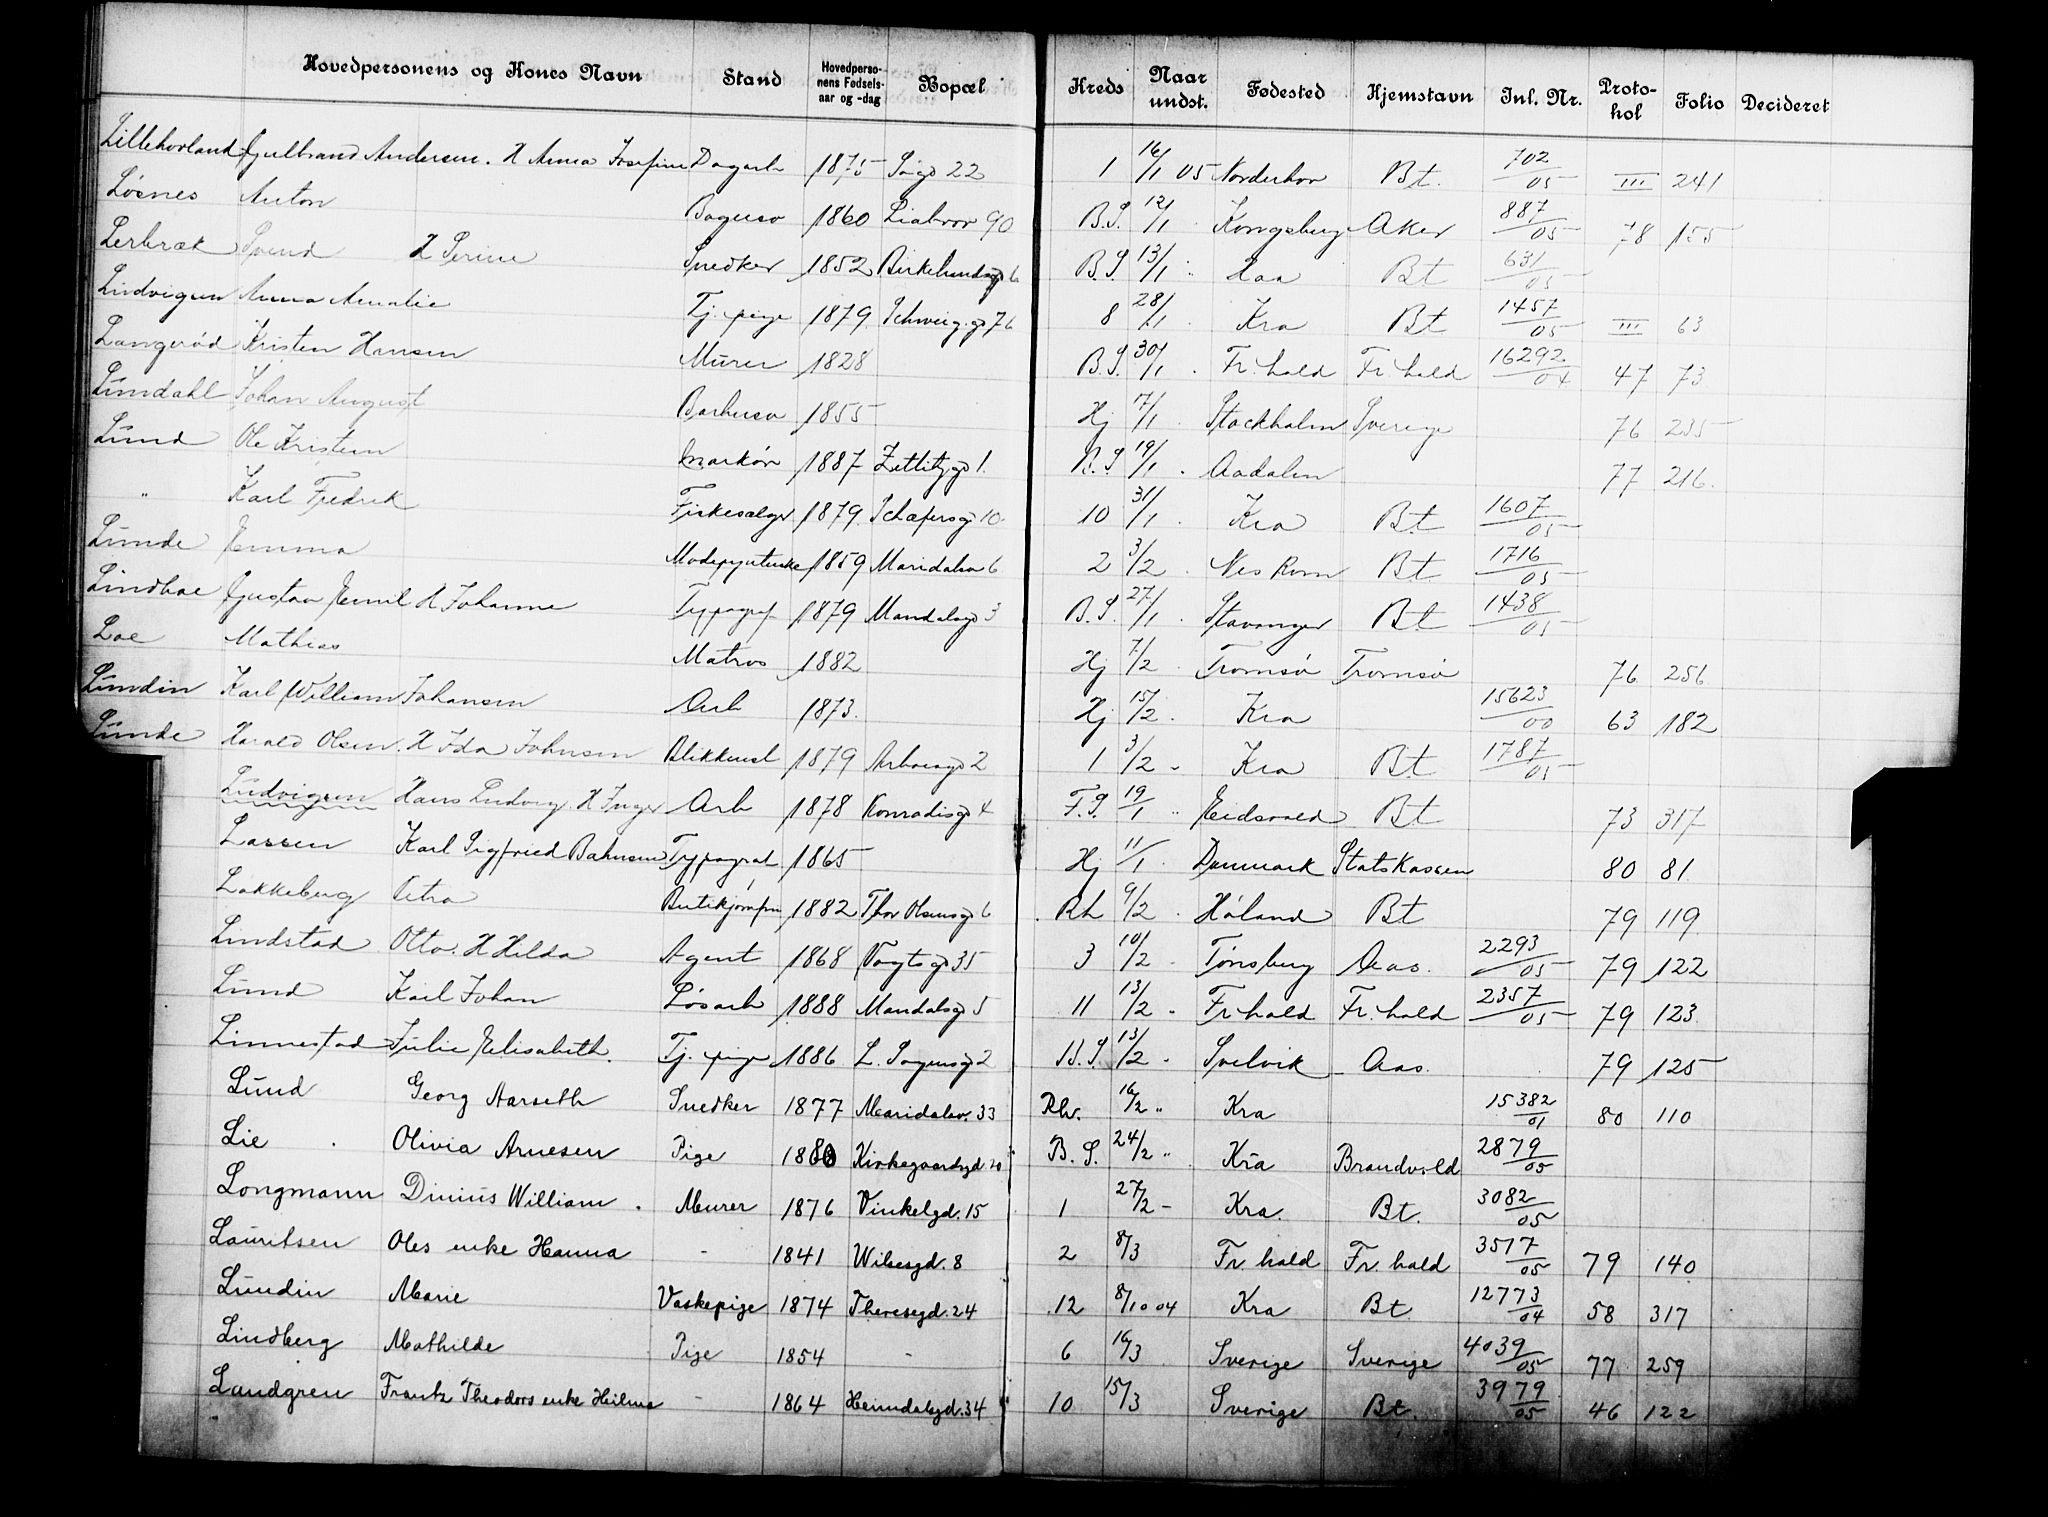 Hovedpersonens og Kones Navn Stand Hovedperso-nens Fødsels-aar og -dag Bopæl Kreds Naar undst. Fødested Hjemstavn Inl. Nr. Proto-kol Folio Decideret
Lillehovland Gulbrand Andersen. H Anna Josefine Dagarb 1875 Sags 22 1 16/1 05 Norderhov Bt. 702/05 III 241
Løsnes Anton Bagersv 1860 Liabrov 90 B.S. 12/1 Kongsberg Aker 887/05 78 155
Lerbræk Svend H Serine Snedker 1852 Birkelundsg 6 B.S 13/1 " Bt 631/05
Ludvigsen Anna Amalie Tj. pige 1879 Schweig.g 76 8 28/1 Kra Bt 1457/05 III 63
Langerød Kristen Hansen Murer 1828 B.S. 30/1 Fr. hald Fr. hald 16292/04 47 73
Lundahl Johan August Barbersv 1855 Hj 17/1 Stockholm Sverige 76 235
Lund Ole Kristen Markør 1887 Zetlitzg 1. B.S 19/1 Aadalen 77 216.
" Karl Fredrik Fiskesælger 1879 Schafersg 10 10 31/1 Kra Bt 1607/05
Lunde Emma Modepynterske 1859 Maridalsv 6 2 3/2 Nes Rom Bt 1716/05
Lindboe Gustav Emil H Johanne Typograf 1879 Mandalsg 3 B.S. 27/1 Stavanger Bt 1438/05
Loe Mathias Matros 1882 Hj 7/2 Tromsø Tromsø 76 256
Lundin Karl William Johansen Arb 1873. Hj 15/2 Kra 15623/00 63 182
Lunde Harald Olsen. H Ida Johnsen Blikkensl 1879 Arboesg 2 1 3/2 Kra Bt 1787/05
Ludvigsen Hans Ludvig. H Inger Arb 1878 Konradisg 4 F.S. 19/1 " Eidsvold Bt 73 317
Lassen Karl Sigfried Bahnsen Typograf. 1865 Hj 11/1 Danmark Statskassen 80 81
Løkkeberg Petra Butikjomfru 1882 Thor Olsensg 6 Rh 9/2 Høland Bt 79 119
Lindstad Otto. H Hilda Agent 1868 Vogtsg 35 3 10/2 Tønsberg Aas. 2293/05 79 122
Lund Karl Johan Løsarb 1888 Mandalsg 5 11 13/2 Fr hald Fr. hald 2357/05 79 123
Linnestad Julie Elisabeth. Tj. pige 1886 L. Sogensg 2 B.S. 13/2 Svelvik Aas. 79 125
Lund Georg Aarseth Snedker 1877 Maridalsv. 33 Rhv. 16/2 " Kra 15382/01 80 110
Lie Olivia Arnesen Pige 1880 Kirkegaardsgd. 20 B. S. 24/2 " Kra Brandvold 2879/05
Longmann Dinius William. Murer 1876 Vinkelgd. 15 1 27/2 - Kra. Bt. 3082/05
Lauritsen Oles enke Hanna - 1841 Wilsesgd. 8 2 8/3 Fr. hald Fr. hald 3517/05 79 140
Lundin Marie Vaskepige 1874 Theresegd. 24 12 8/10 04 Kra Bt. 12773/04 58 317
Lindberg Mathilde Pige 1854 - 6 16/3 Sverige Sverige 4039/05 77 259
Landgren Frantz Theodors enke Heilma - 1864 Heimdalsgd. 34 10 15/3 Sverige Bt. 3979/05 46 122